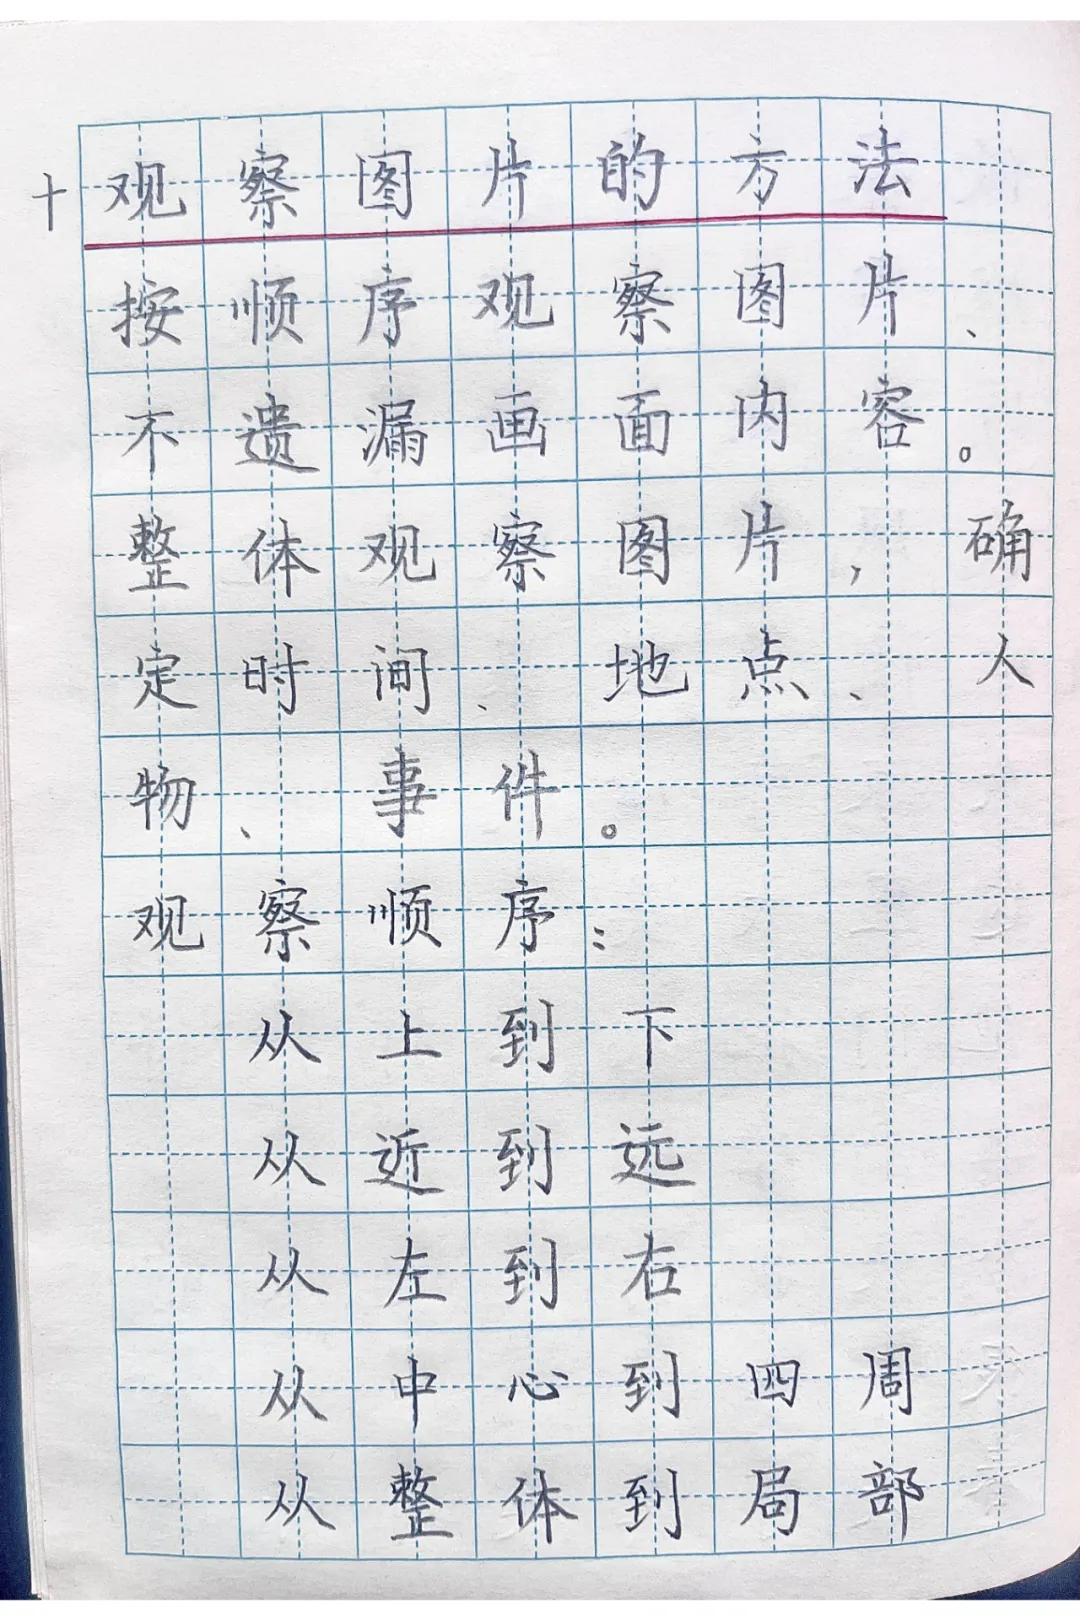 十 观察图片的方法
按顺序观察图片、
不遗漏画面内容。
整体观察图片，确
定时间、地点、人
物、事件。
观察顺序：
从上到下
从近到远
从左到右
从中心到四周
从整体到局部